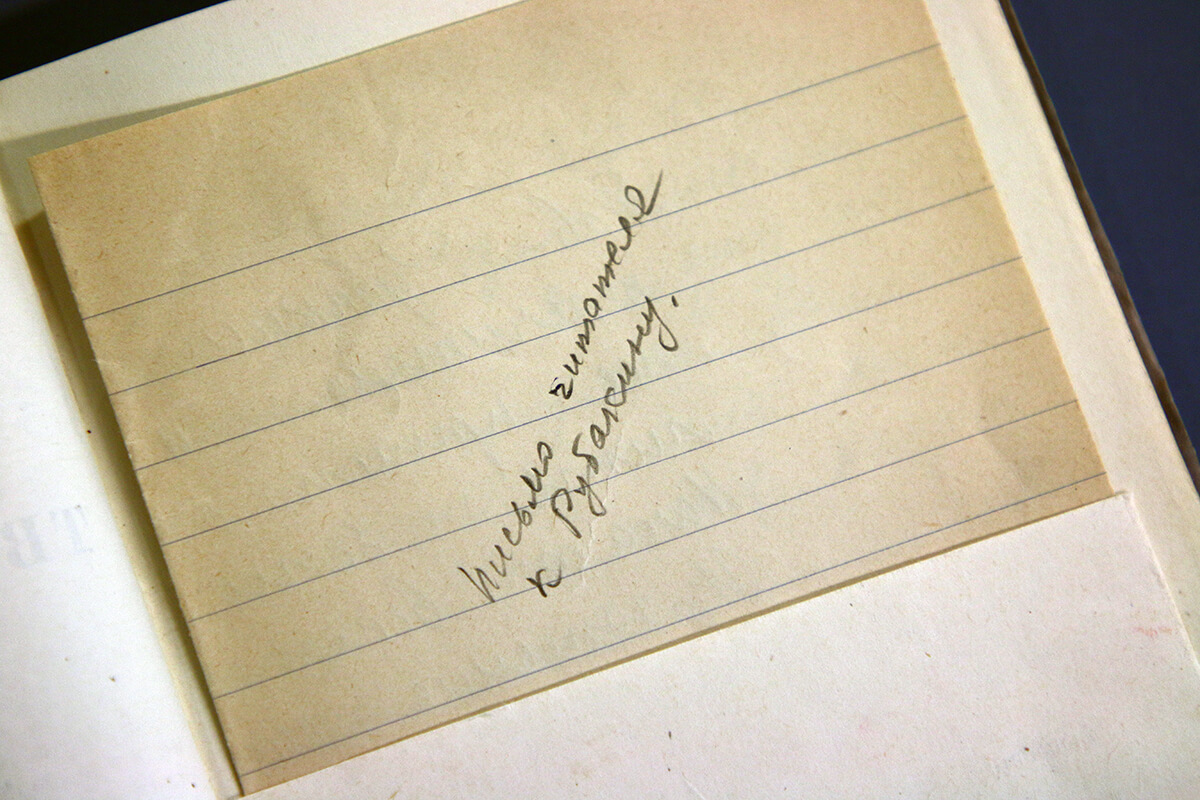 Письмо читателя
к Рубакину.